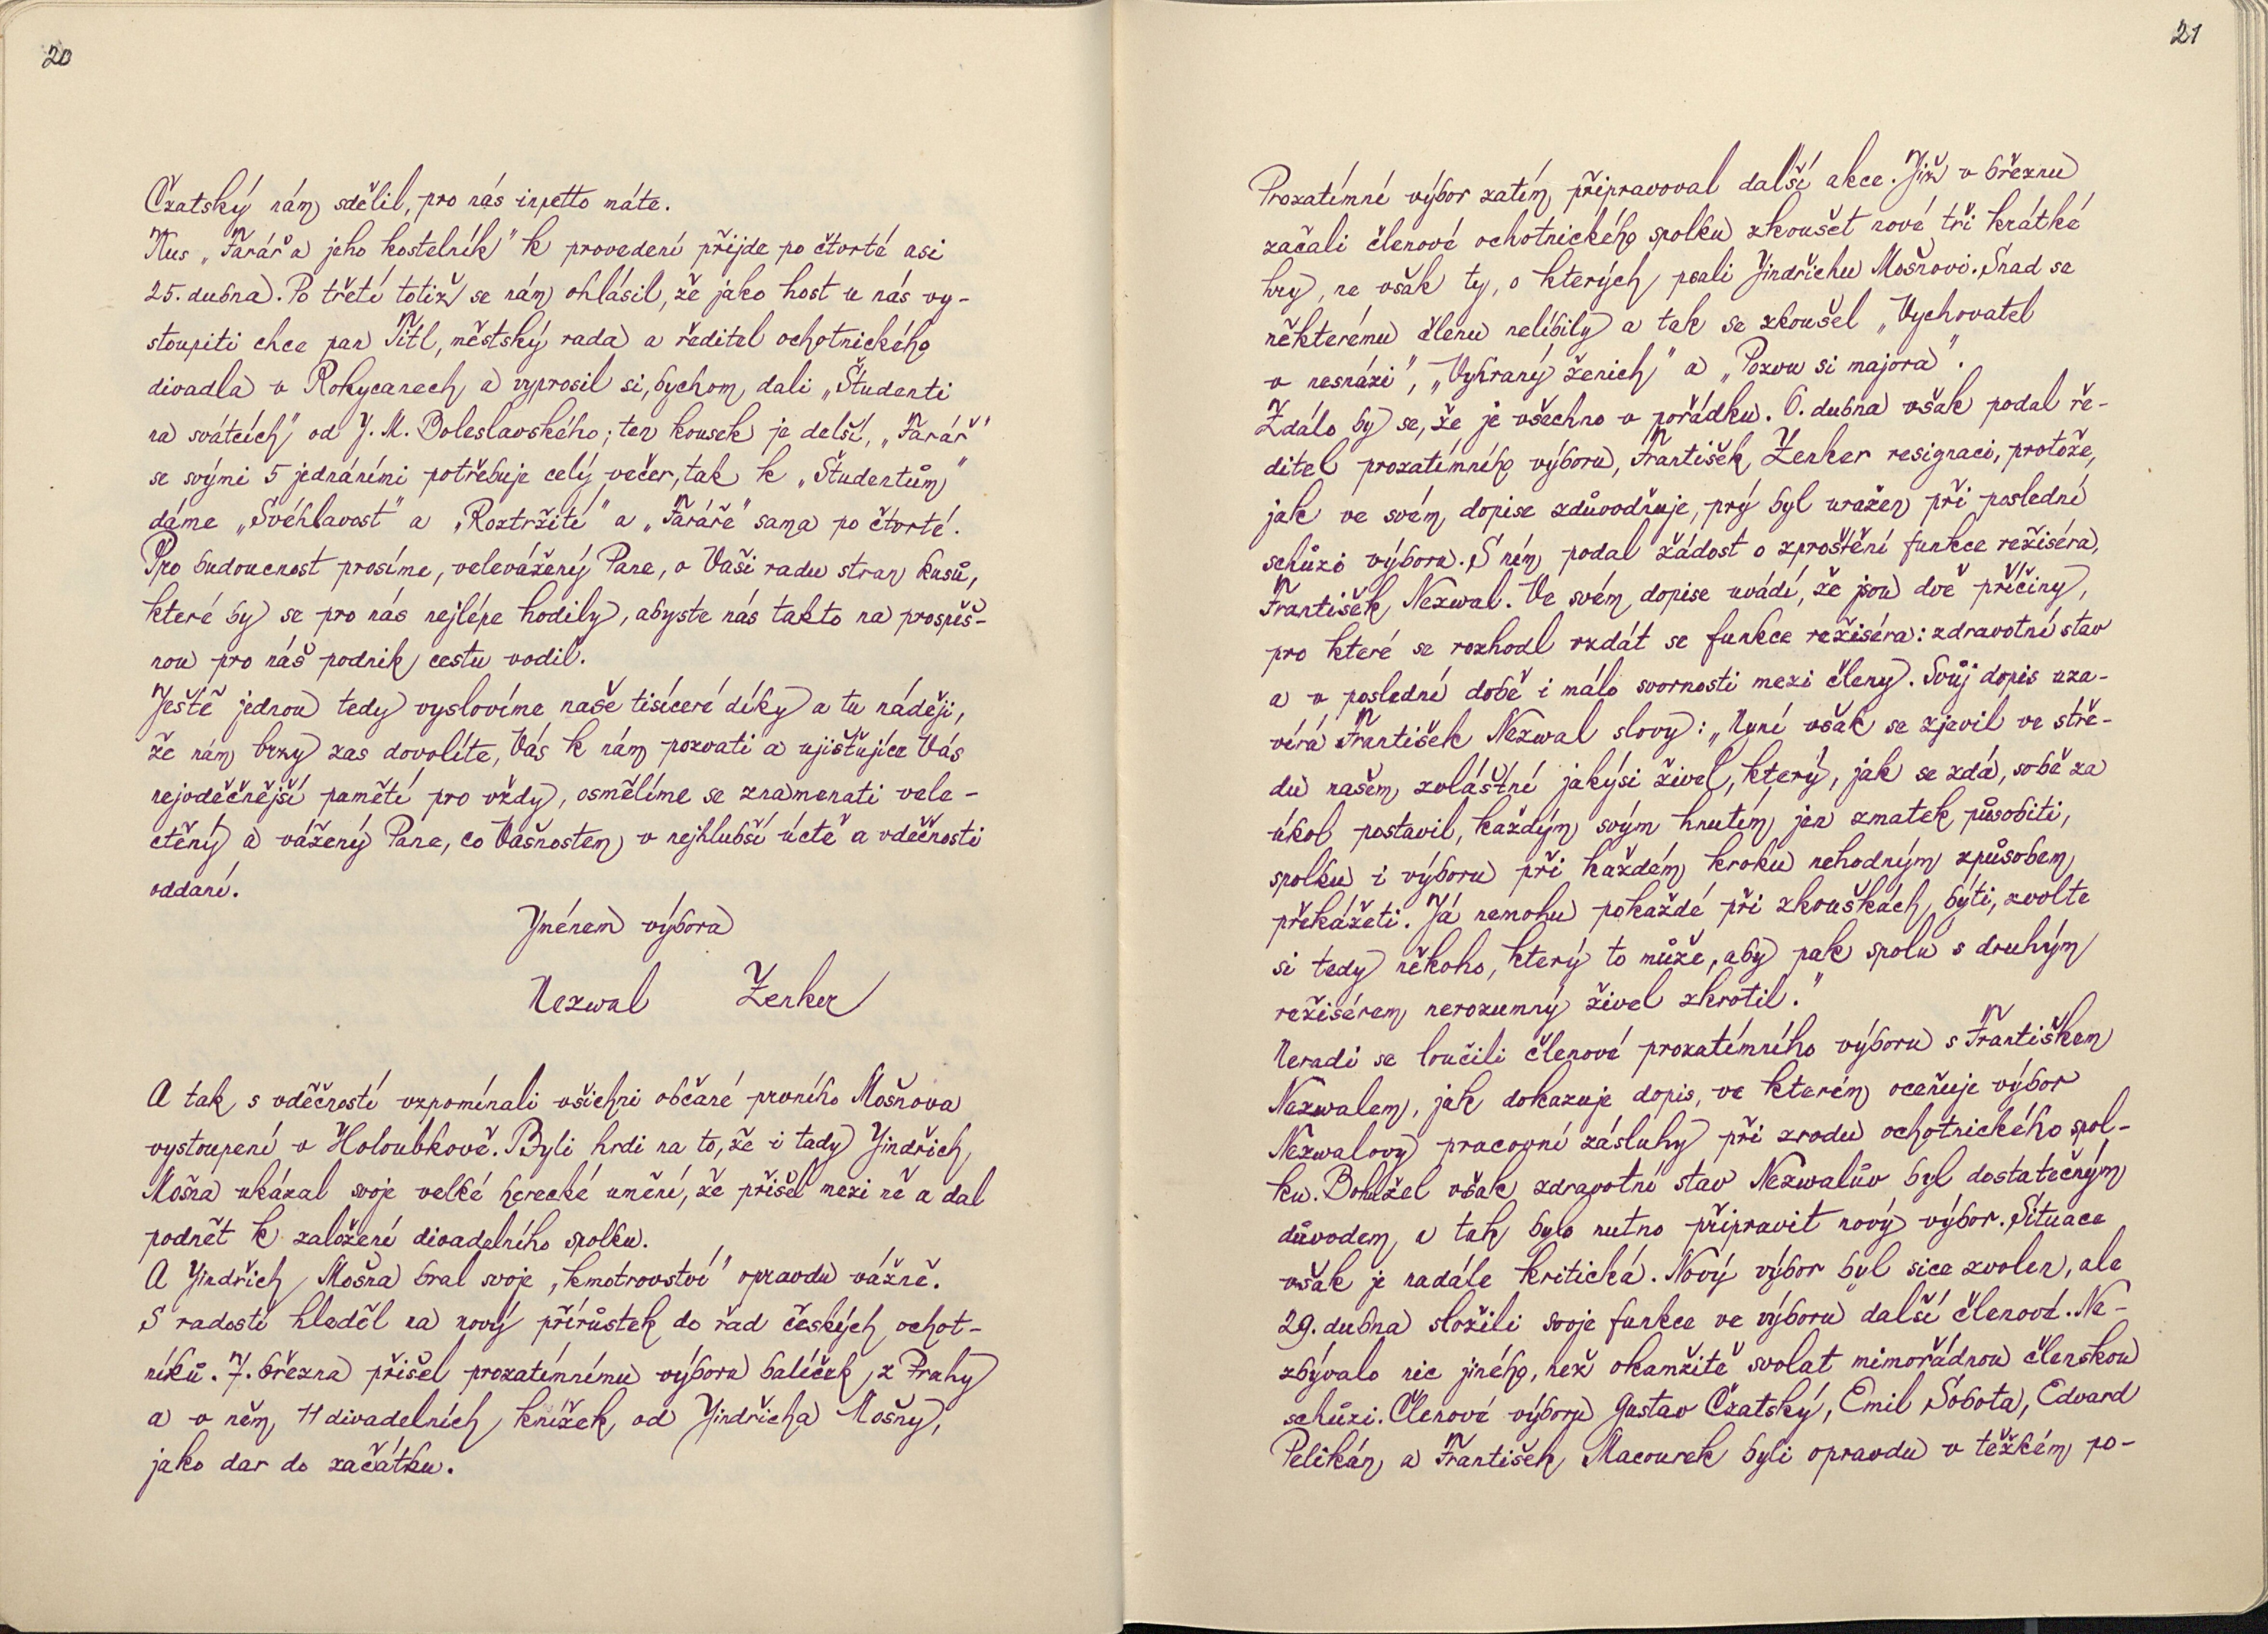 20
Čžatský nám sdělil, pro nás inpetto máte.
Kus „Farář a jeho kostelník" k provedení přijde po čtvrté asi
25. dubna. Po třetí totiž se nám ohlásil, že jako host u nás vy-
stoupiti chce pan Titl, městský rada a ředitel ochotnického
divadla v Rokycanech a vyprosil si, bychom dali „Študenti
na svátcích" od J. M. Boleslavského; ten kousek je delší, „Farář"
se svými 5 jednáními potřebuje celý večer, tak k „Študentům"
dáme „Svéhlavost" a „Roztržití" a „Faráře" sama po čtvrté.
Pro budoucnost prosíme, velevážený Pane, o Vaši radu stran kusů,
které by se pro nás nejlépe hodily, abyste nás takto na prospěš-
nou pro náš podnik cestu vodil.
Ještě jednou tedy vyslovíme naše tisíceré díky a tu náději,
že nám brzy zas dovolíte, Vás k nám pozvati a ujišťujíce Vás
nejvděčnější pamětí pro vždy, osmělíme se znamenati vele-
ctěný a vážený Pane, co Vašnostem v nejhlubší úctě a vděčnosti
oddaní.
Jménem výbora
Nezwal Zenker
A tak s vděčností vzpomínali všichni občané prvního Mošnova
vystoupení v Holoubkově. Byli hrdi na to, že i tady Jindřich
Mošna ukázal svoje velké herecké umění, že přišel mezi ně a dal
podnět k založení divadelního spolku.
A Jindřich Mošna bral svoje „kmotrovství" opravdu vážně.
S radostí hleděl na nový přírůstek do řad českých ochot-
níků. 7. března přišel prozatímnímu výboru balíček z Prahy
a v něm 11 divadelních knížek od Jindřicha Mošny,
jako dar do začátku.
21
Prozatímní výbor zatím připravoval další akce. Již v březnu
začali členové ochotnického spolku zkoušet nové tři krátké
hry, ne však ty, o kterých psali Jindřichu Mošnovi. Snad se
některému členu nelíbily a tak se zkoušel „Vychovatel
v nesnázi", „Vybraný ženich" a „Pozvu si majora".
Zdálo by se, že je všechno v pořádku. 6. dubna však podal ře-
ditel prozatímního výboru, František Zenker resignaci, protože,
jak ve svém dopise zdůvodňuje, prý byl uražen při poslední
schůzi výboru. S ním podal žádost o zproštění funkce režiséra,
František Nezwal. Ve svém dopise uvádí, že jsou dvě příčiny,
pro které se rozhodl vzdát se funkce režiséra: zdravotní stav
a v poslední době i málo svornosti mezi členy. Svůj dopis uza-
vírá František Nezwal slovy: „Nyní však se zjevil ve stře-
du našem zvláštní jakýsi živel, který, jak se zdá, sobě za
úkol postavil, každým svým hnutím jen zmatek působiti,
spolku i výboru při každém kroku nehodným způsobem
překážeti. Já nemohu pokaždé při zkouškách býti, zvolte
si tedy někoho, který to může, aby pak spolu s druhým
režisérem nerozumný živel zkrotil."
Neradi se loučili členové prozatímního výboru s Františkem
Nezwalem, jak dokazuje dopis, ve kterém oceňuje výbor
Nezwalovy pracovní zásluhy při zrodu ochotnického spol-
ku. Bohužel však zdravotní stav Nezwalův byl dostatečným
důvodem a tak bylo nutno připravit nový výbor. Situace
však je nadále kritická. Nový výbor byl sice zvolen, ale
29. dubna složili svoje funkce ve výboru další členové. Ne-
zbývalo nic jiného, než okamžitě svolat mimořádnou členskou
schůzi. Členové výboru Gustav Čžatský, Emil Sobota, Edvard
Pelikán a František Macourek byli opravdu v těžkém po-